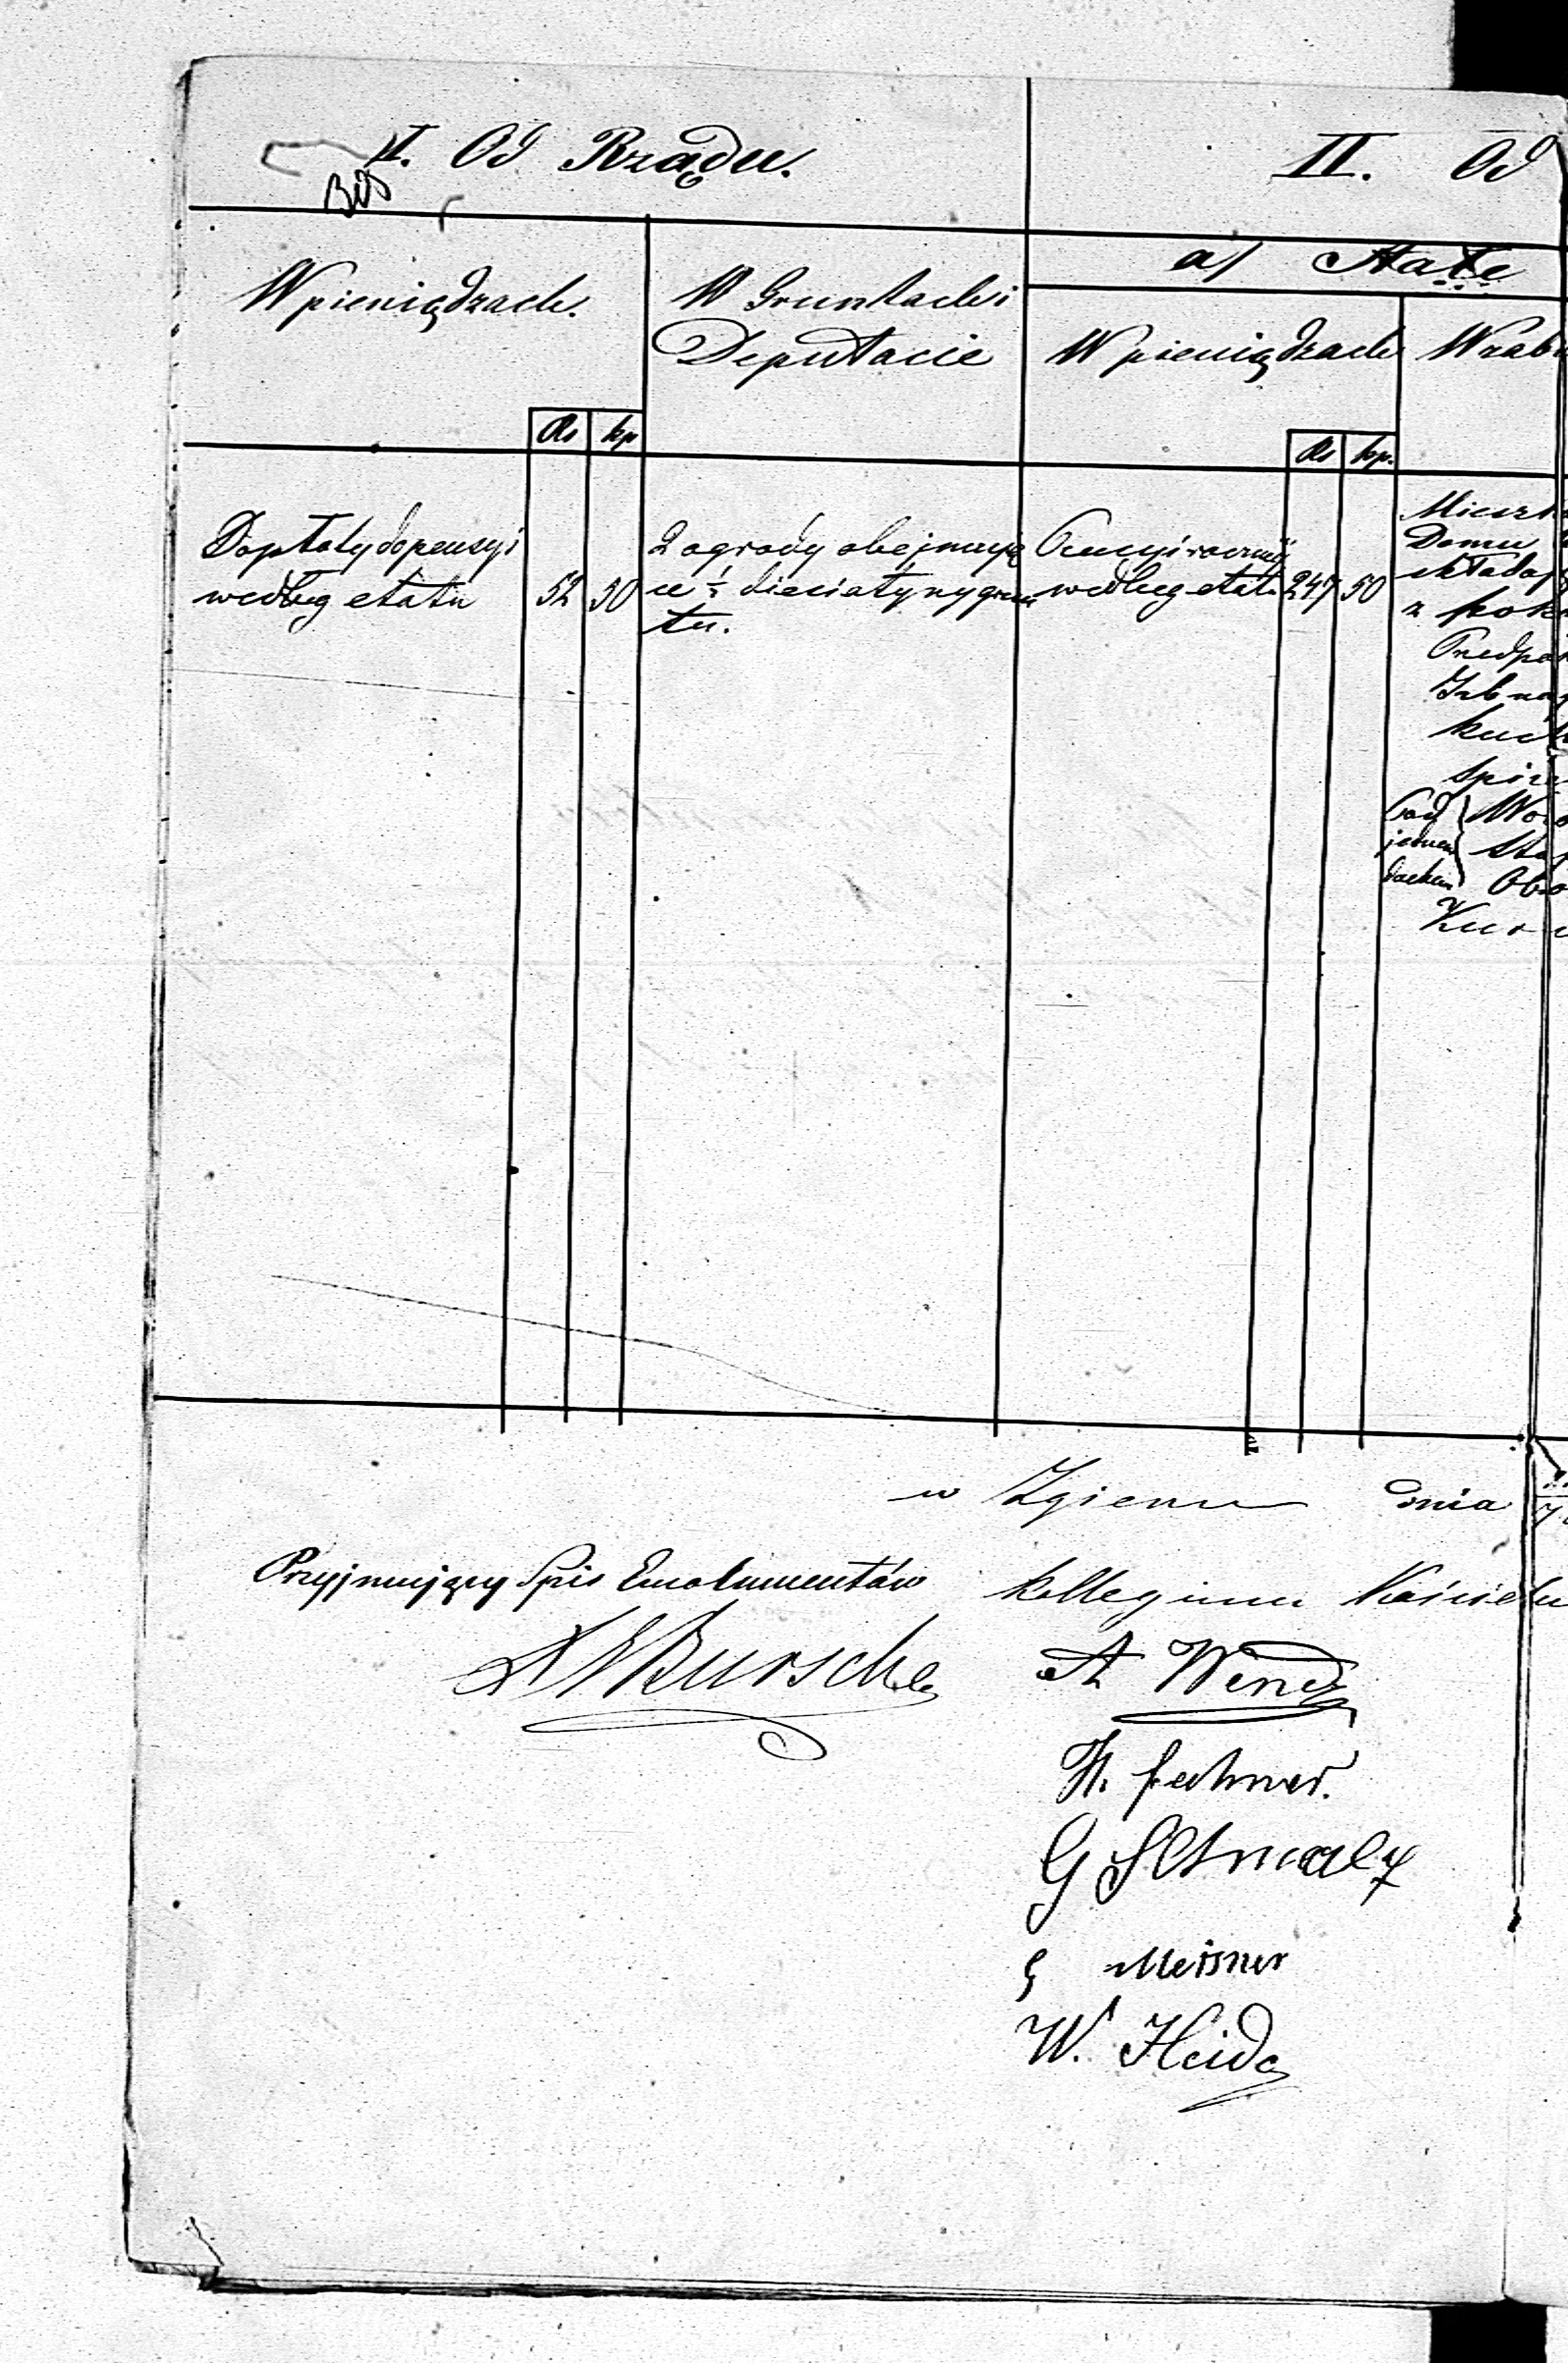 I. Od Rządu.
II. Od
a/ Stałe
W pieniądzach.
W Gruntach i
Deputacie
W pieniądzach
W zab
Rs kp
Rs kp.
Dopłaty do pensyi
według etatu 52 50
2 ogrody obejmują
ce ½ dziesiatyny grun
tu.
Pensyi rocznéj
według etatu 247 50
Mieszk
Domu
składają
z pok
Przedpo
Izb na
kuch
Spiż
Pod
jednem
dachem
Wozo
Staj
Obo
Kur
w Zgierzu dnia
Przyjmujący Spis Emolumentów
Kollegium Kościelne
Bursche
A Wende
W. Fechner.
G Schmalz
G Meisner
W. Heide